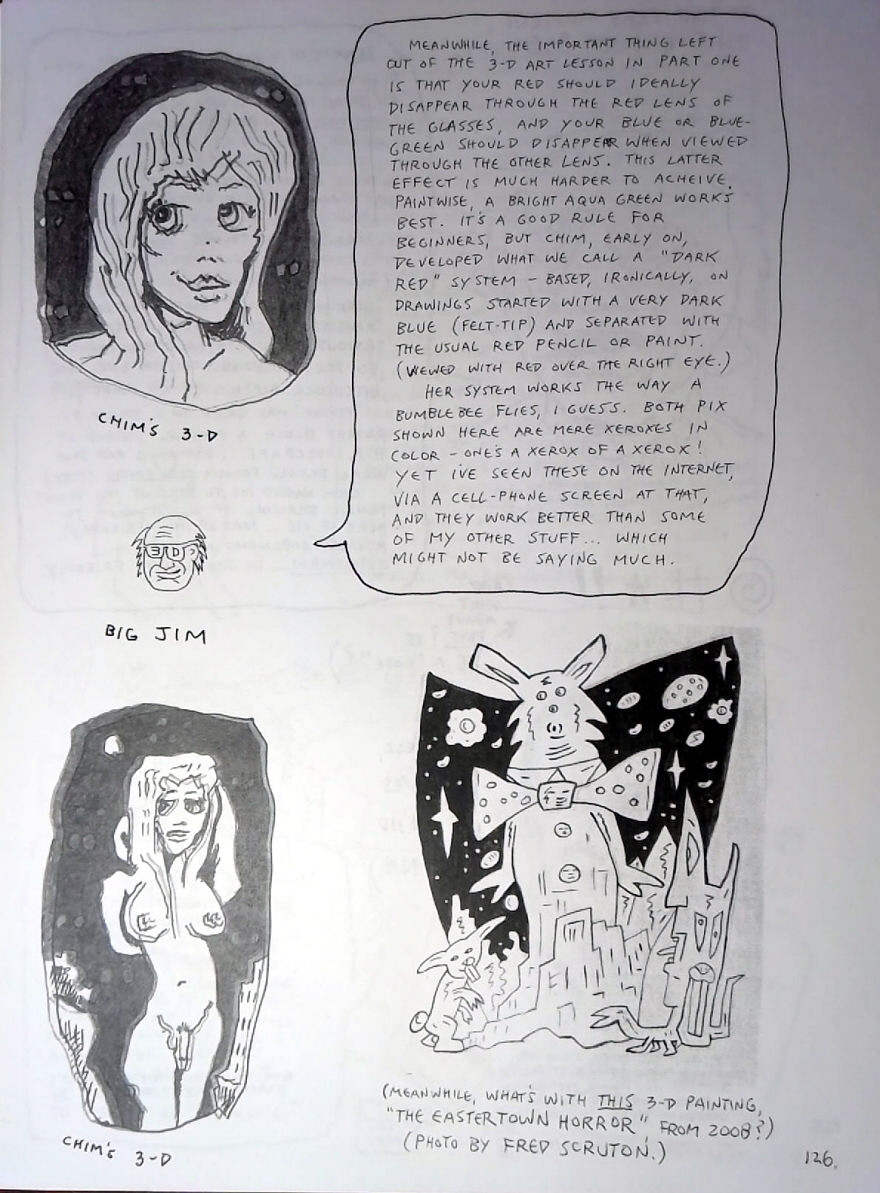 MEANWHILE, THE IMPORTANT THING LEFT
OUT OF THE 3-D ART LESSON IN PART ONE
IS THAT YOUR RED SHOULD IDEALLY
DISAPPEAR THROUGH THE RED LENS OF
THE GLASSES, AND YOUR BLUE OR BLUE-
GREEN SHOULD DISAPPEAR WHEN VIEWED
THROUGH THE OTHER LENS. THIS LATTER
EFFECT IS MUCH HARDER TO ACHEIVE.
PAINTWISE, A BRIGHT AQUA GREEN WORKS
BEST. IT'S A GOOD RULE FOR
BEGINNERS, BUT CHIM, EARLY ON,
DEVELOPED WHAT WE CALL A "DARK
RED" SYSTEM - BASED, IRONICALLY, ON
DRAWINGS STARTED WITH A VERY DARK
BLUE (FELT-TIP) AND SEPARATED WITH
THE USUAL RED PENCIL OR PAINT.
(VIEWED WITH RED OVER THE RIGHT EYE.)
HER SYSTEM WORKS THE WAY A
BUMBLEBEE FLIES, I GUESS. BOTH PIX
SHOWN HERE ARE MERE XEROXES IN
COLOR - ONE'S A XEROX OF A XEROX!
YET I'VE SEEN THESE ON THE INTERNET,
VIA A CELL-PHONE SCREEN AT THAT,
AND THEY WORK BETTER THAN SOME
OF MY OTHER STUFF... WHICH
MIGHT NOT BE SAYING MUCH.
CHIM'S 3-D
3D
BIG JIM
CHIM'S 3-D
(MEANWHILE, WHAT'S WITH THIS 3-D PAINTING,
"THE EASTERTOWN HORROR", FROM 2008?)
(PHOTO BY FRED SCRUTON.)
126.